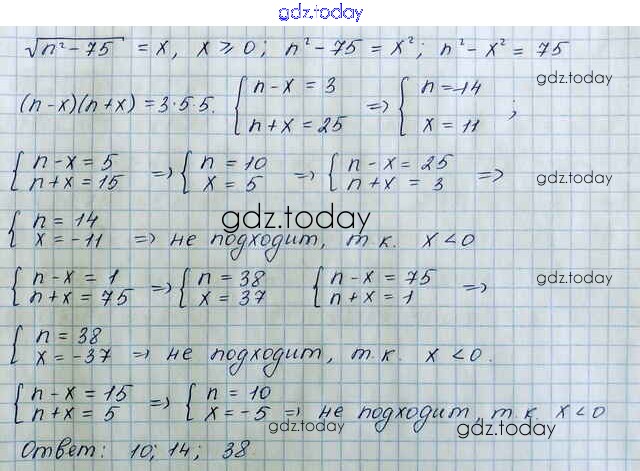 gdz.today
√(n² - 75) = x, x ⩾ 0; n² - 75 = x²; n² - x² = 75
gdz.today
(n-x)(n+x) = 3·5·5. { n-x = 3 n+x = 25 => { n=14 x = 11 ;
{ n-x = 5 n+x = 15 => { n = 10 x = 5 => { n-x = 25 n+x = 3 =>
gdz.today
{ n = 14 x = -11 => не подходит, т.к. x<0
gdz.today
{ n-x = 1 n+x = 75 => { n = 38 x = 37 { n-x = 75 n+x = 1 =>
gdz.today
{ n = 38 x = -37 => не подходит, т.к. x<0.
{ n-x = 15 n+x = 5 => { n = 10 x = -5 => не подходит, т.к. x<0
gdz.today
gdz.today
Ответ: 10; 14; 38